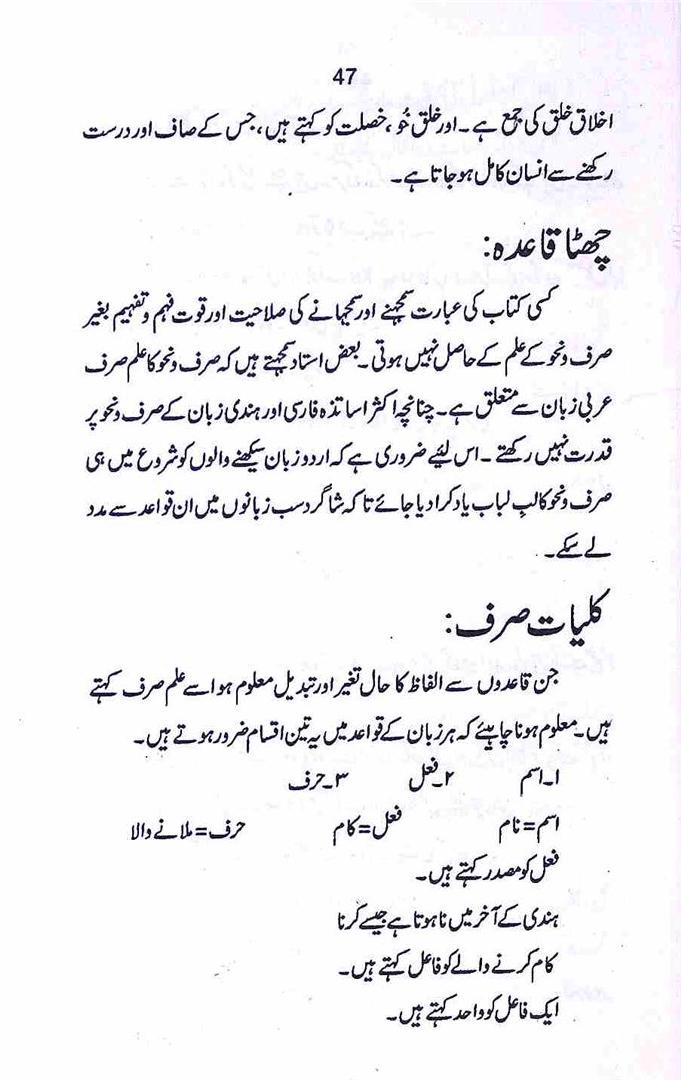 47
اخلاق خلق کی جمع ہے۔ اور خلق خُو، خصلت کو کہتے ہیں، جس کے صاف اور درست
رکھنے سے انسان کامل ہو جاتا ہے۔
چھٹا قاعدہ:
کسی کتاب کی عبارت سمجھنے اور سمجھانے کی صلاحیت اور قوت فہم و تفہیم بغیر
صرف و نحو کے علم کے حاصل نہیں ہوتی۔ بعض استاد سمجھتے ہیں کہ صرف و نحو کا علم صرف
عربی زبان سے متعلق ہے۔ چنانچہ اکثر اساتذہ فارسی اور ہندی زبان کے صرف و نحو پر
قدرت نہیں رکھتے۔ اس لیئے ضروری ہے کہ اردو زبان سیکھنے والوں کو شروع میں ہی
صرف و نحو کا لبِ لباب یاد کرا دیا جائے تاکہ شاگرد سب زبانوں میں ان قواعد سے مدد
لے سکے۔
کلیات صرف:
جن قاعدوں سے الفاظ کا حال تغیر اور تبدیل معلوم ہو اسے علم صرف کہتے
ہیں۔ معلوم ہونا چاہیئے کہ ہر زبان کے قواعد میں یہ تین اقسام ضرور ہوتے ہیں۔
۱۔ اسم ۲۔ فعل ۳۔ حرف
اسم = نام فعل = کام حرف = ملانے والا
فعل کو مصدر کہتے ہیں۔
ہندی کے آخر میں نا ہوتا ہے جیسے کرنا
کام کرنے والے کو فاعل کہتے ہیں۔
ایک فاعل کو واحد کہتے ہیں۔